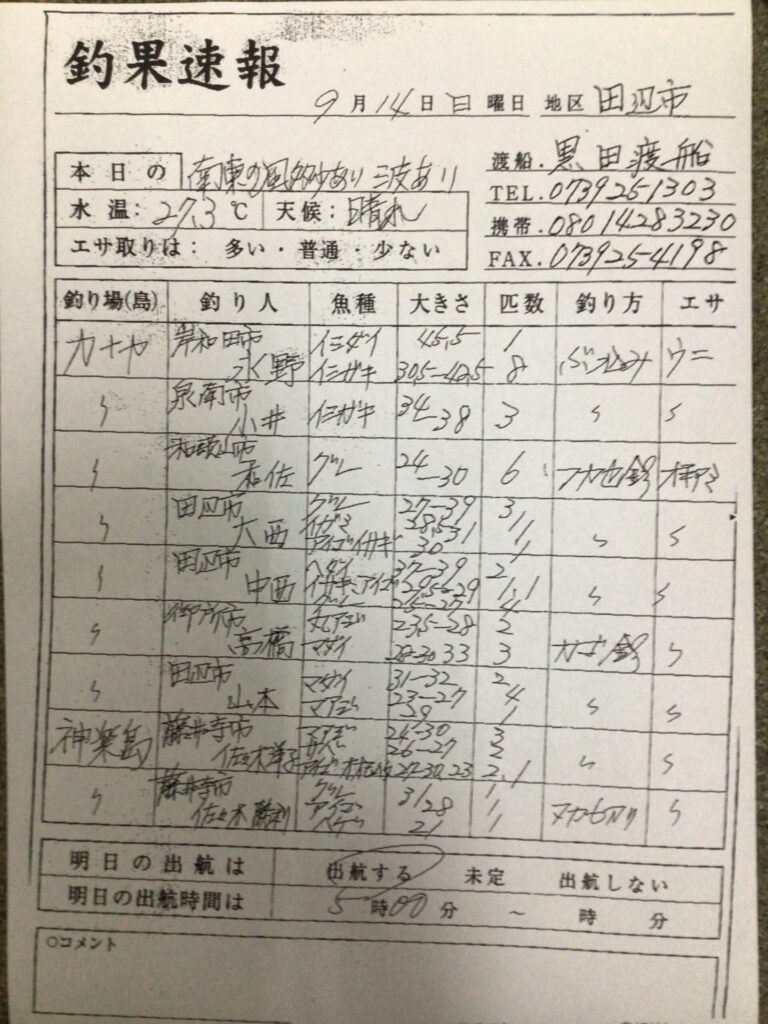 釣果速報
9月14日日曜日 地区 田辺市
渡船.黒田渡船
本日の 南東の風多少あり 波あり
TEL.0739251303
水温: 27.3℃ 天候: 晴れ
携帯.08014283230
エサ取りは: 多い・普通・少ない
FAX.0739254198
釣り場(島) 釣り人 魚種 大きさ 匹数 釣り方 エサ
カナヤ 岸和田市 イシダイ 45.5 1
水野 イシガキ 30.5-42.5 8 ぶっ込み ウニ
〃 泉南市
小井 イシガキ 34-38 3 〃 〃
〃 和歌山市
和佐 グレ 24-30 6 フカセ釣 オキアミ
〃 田辺市 グレ 27-39 3
大西 イガミ 38.5 31 1 1 〃 〃
アイゴ イサギ 30 1
〃 田辺市 ヘダイ 37-39 2
中西 イサギ、アイゴ 29.5-29 1.1 〃 〃
グレ 25-27 4
〃 御所市 丸アジ 23.5-28 2
高橋 マダイ 28-30 33 3 カゴ釣 〃
〃 田辺市 マダイ 31-32 2
山本 マアジ 23-27 4 〃 〃
29 1
神楽島 藤井寺市 マアジ 24-30 3
佐々木洋子 サバ 26-27 2 〃 〃
アイゴ 27-30.23 2.1
〃 藤井寺市 グレ 31 1
佐々木勝利 アイゴ 28 1 フカセ釣り 〃
21
明日の出航は 出航する 未定 出航しない
明日の出航時間は 5時00分 ～ 時 分
○コメント